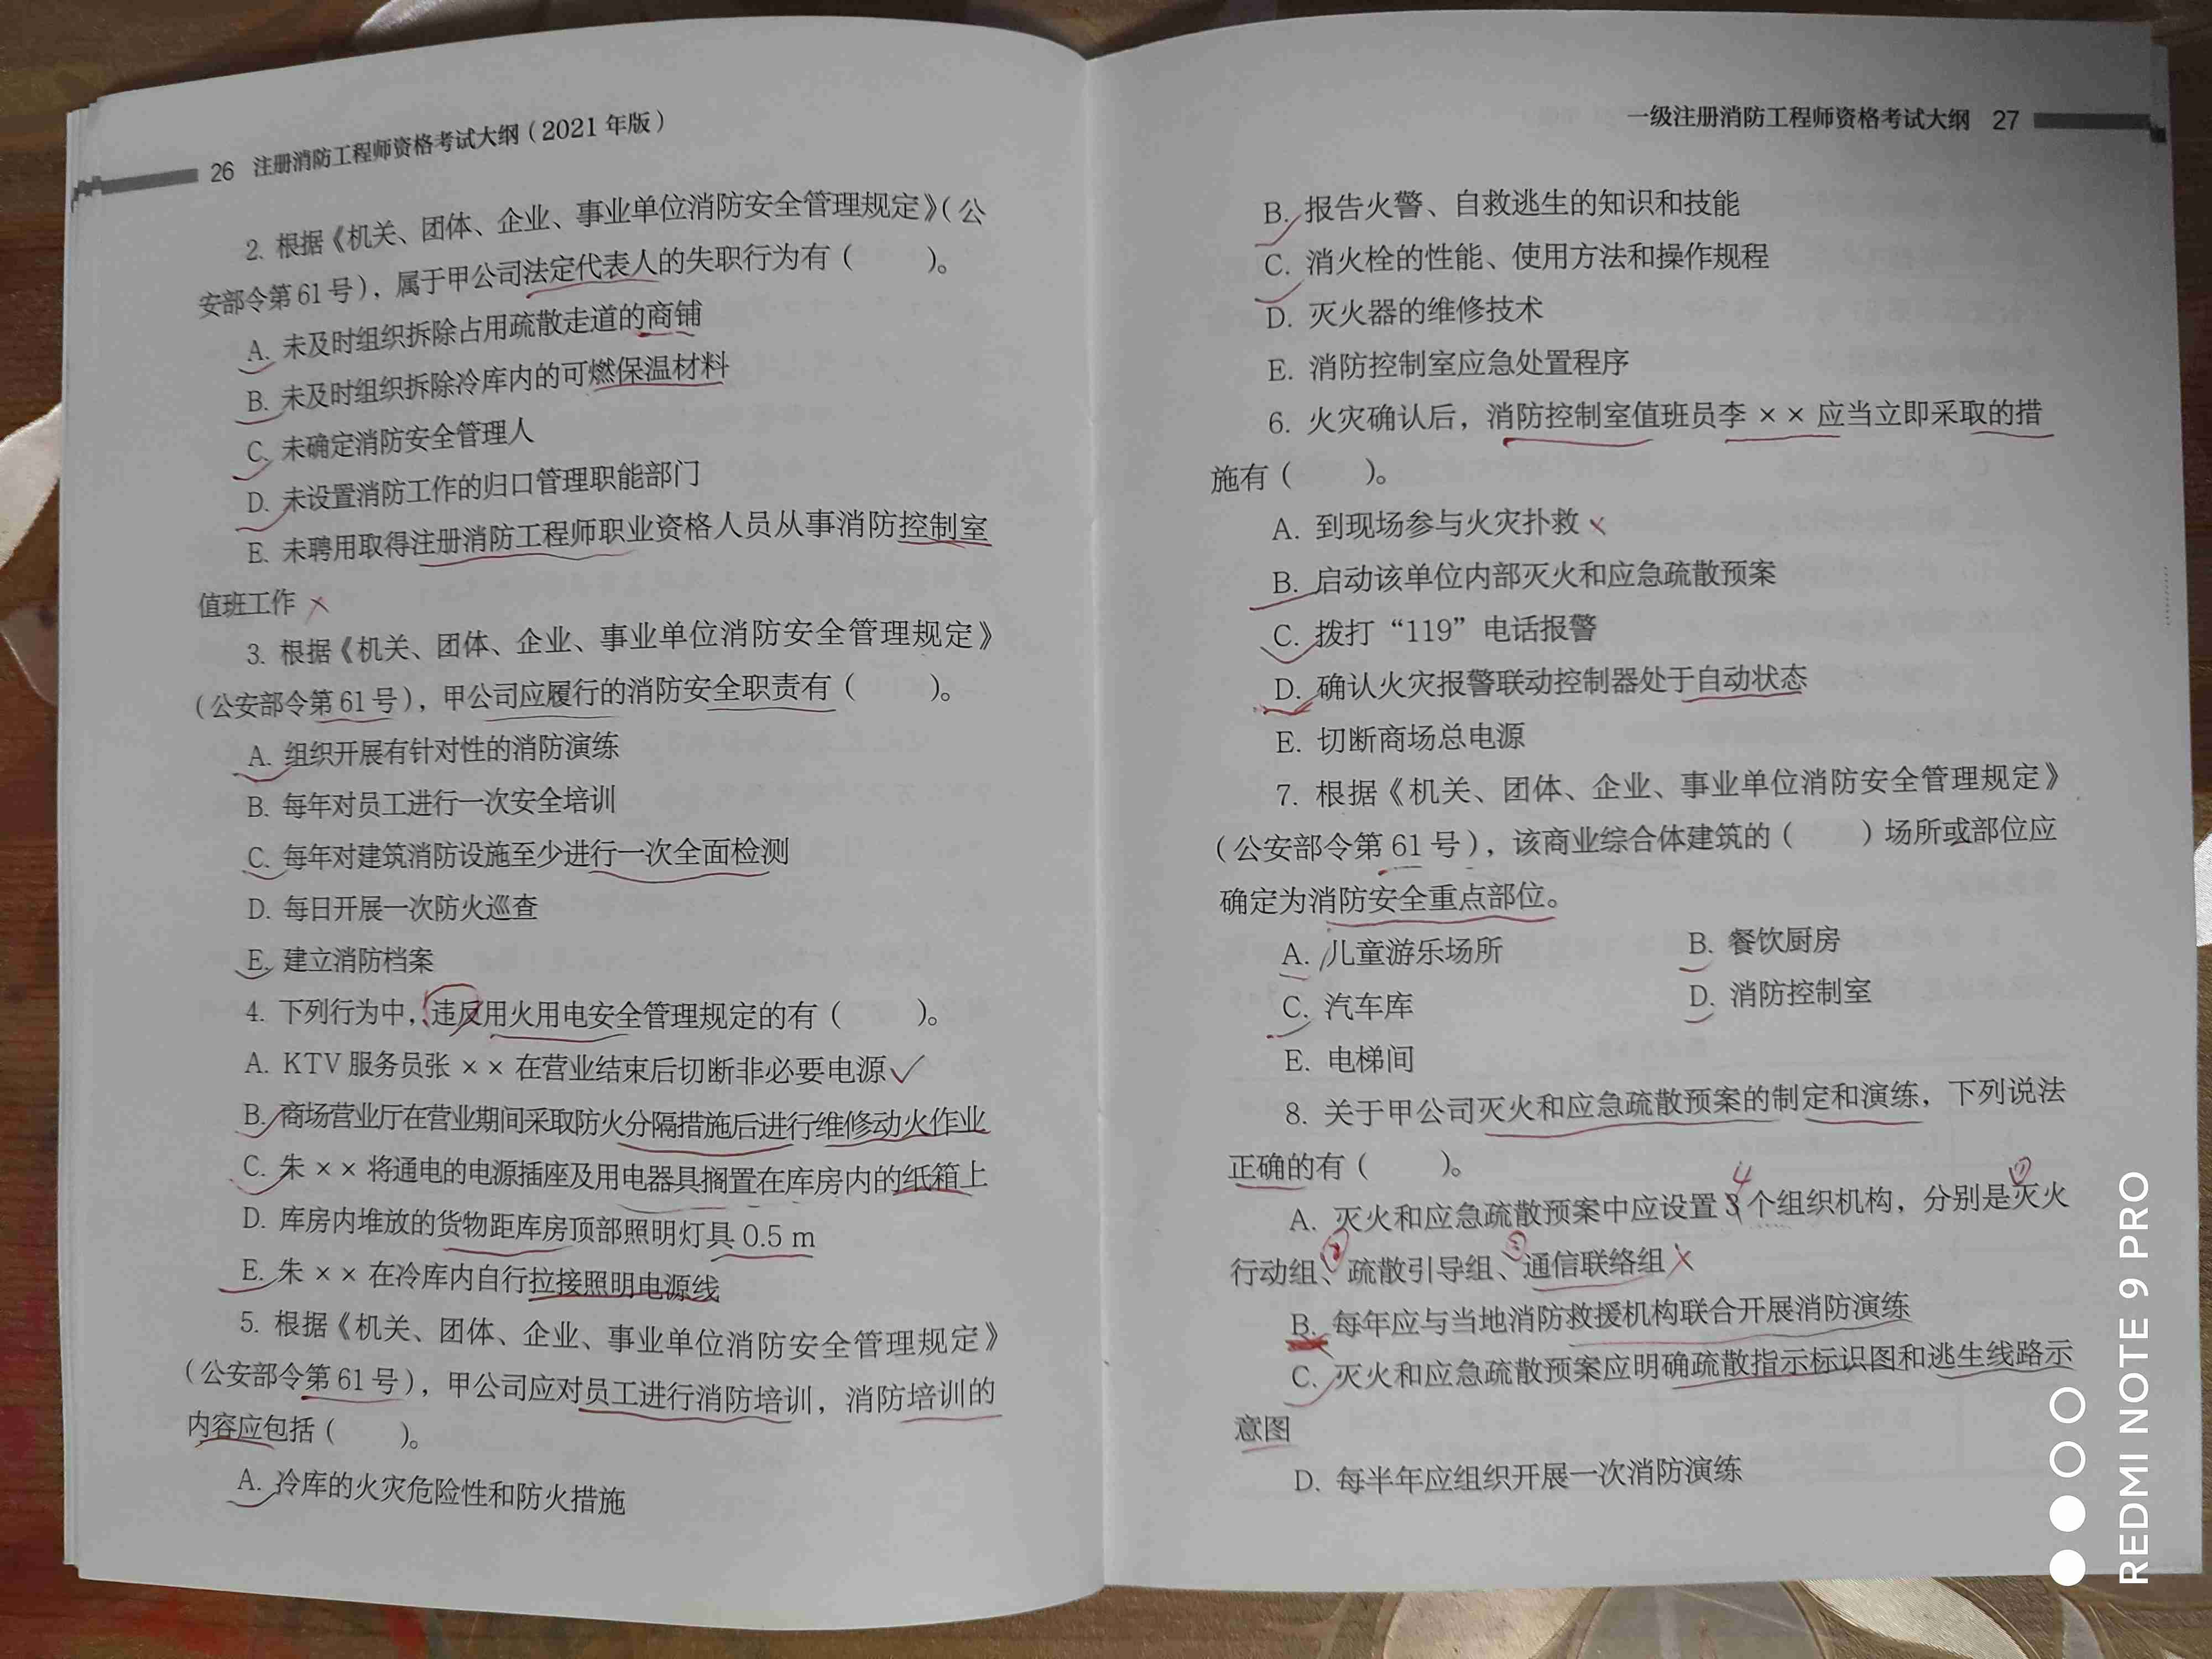 26 注册消防工程师资格考试大纲（2021年版）
2. 根据《机关、团体、企业、事业单位消防安全管理规定》（公
安部令第61号），属于甲公司法定代表人的失职行为有（ ）。
A. 未及时组织拆除占用疏散走道的商铺
B. 未及时组织拆除冷库内的可燃保温材料
C. 未确定消防安全管理人
D. 未设置消防工作的归口管理职能部门
E. 未聘用取得注册消防工程师职业资格人员从事消防控制室
值班工作 ×
3. 根据《机关、团体、企业、事业单位消防安全管理规定》
（公安部令第61号），甲公司应履行的消防安全职责有（ ）。
A. 组织开展有针对性的消防演练
B. 每年对员工进行一次安全培训
C. 每年对建筑消防设施至少进行一次全面检测
D. 每日开展一次防火巡查
E. 建立消防档案
4. 下列行为中，违反用火用电安全管理规定的有（ ）。
A. KTV服务员张××在营业结束后切断非必要电源✓
B. 商场营业厅在营业期间采取防火分隔措施后进行维修动火作业
C. 朱××将通电的电源插座及用电器具搁置在库房内的纸箱上
D. 库房内堆放的货物距库房顶部照明灯具0.5 m
E. 朱××在冷库内自行拉接照明电源线
5. 根据《机关、团体、企业、事业单位消防安全管理规定》
（公安部令第61号），甲公司应对员工进行消防培训，消防培训的
内容应包括（ ）。
A. 冷库的火灾危险性和防火措施
一级注册消防工程师资格考试大纲 27
B. 报告火警、自救逃生的知识和技能
C. 消火栓的性能、使用方法和操作规程
D. 灭火器的维修技术
E. 消防控制室应急处置程序
6. 火灾确认后，消防控制室值班员李××应当立即采取的措
施有（ ）。
A. 到现场参与火灾扑救 ×
B. 启动该单位内部灭火和应急疏散预案
C. 拨打“119”电话报警
D. 确认火灾报警联动控制器处于自动状态
E. 切断商场总电源
7. 根据《机关、团体、企业、事业单位消防安全管理规定》
（公安部令第61号），该商业综合体建筑的（ ）场所或部位应
确定为消防安全重点部位。
A. 儿童游乐场所 B. 餐饮厨房
C. 汽车库 D. 消防控制室
E. 电梯间
8. 关于甲公司灭火和应急疏散预案的制定和演练，下列说法
正确的有（ ）。
4 ①
A. 灭火和应急疏散预案中应设置3个组织机构，分别是灭火
② ③
行动组、疏散引导组、通信联络组 ×
B. 每年应与当地消防救援机构联合开展消防演练
C. 灭火和应急疏散预案应明确疏散指示标识图和逃生线路示
意图
D. 每半年应组织开展一次消防演练
REDMI NOTE 9 PRO